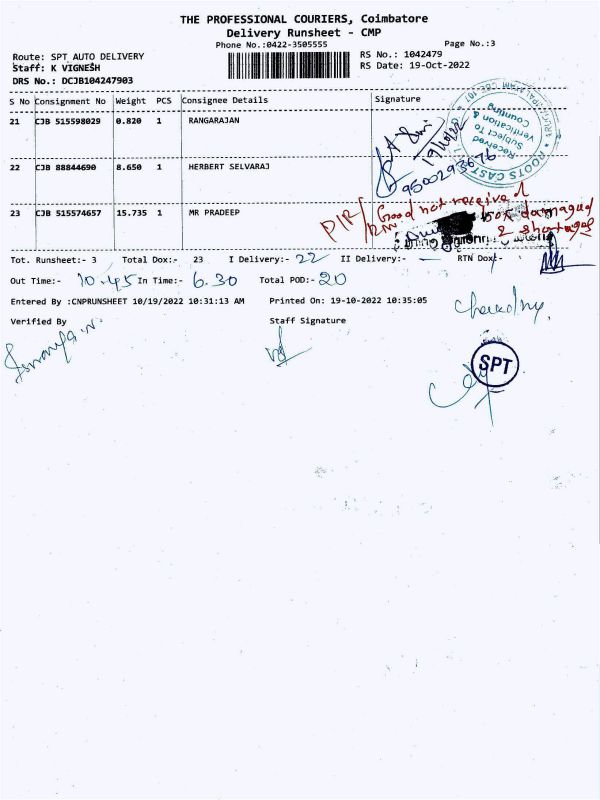 THE PROFESSIONAL COURIERS, Coimbatore
Delivery Runsheet - CMP
Phone No.:0422-3505555
Page No.:3
Route: SPT AUTO DELIVERY
RS No.: 1042479
Staff: K VIGNESH
RS Date: 19-Oct-2022
DRS No.: DCJB104247903
S No Consignment No Weight PCS Consignee Details Signature
21 CJB 515598029 0.820 1 RANGARAJAN
19/10/22
9500293676
Received
Subject To
Verification &
Counting
ROOTS CAST
22 CJB 88844690 8.650 1 HERBERT SELVARAJ
23 CJB 515574657 15.735 1 MR PRADEEP
Good not received
box damaged
& shortages
Tot. Runsheet:- 3 Total Dox:- 23 I Delivery:- 22 II Delivery:- — RTN Dox:-
Out Time:- 10.45 In Time:- 6.30 Total POD:- 20
Entered By :CNPRUNSHEET 10/19/2022 10:31:13 AM Printed On: 19-10-2022 10:35:05
Verified By Staff Signature
SPT